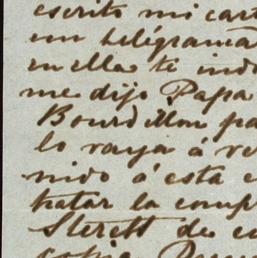 escrito mi cart
un telégrama
en ella te indi
me dijo Papa
Bourdillon pa
lo vaya á ve
nido á esta c
tratar la comp
Sterett de
copia